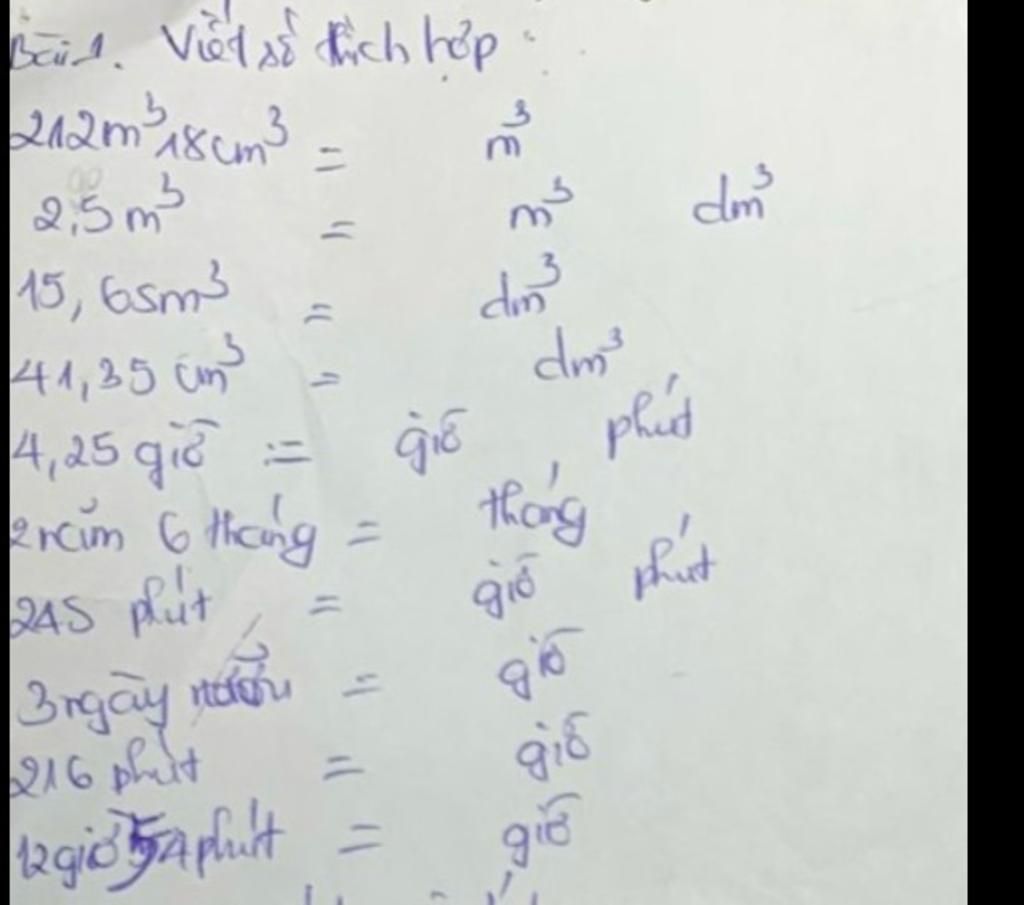 Bài 1. Viết số thích hợp :
212m³ 18cm³ = m³
2,5m³ = m³ dm³
15,65m³ = dm³
41,35 cm³ = dm³
4,25 giờ = giờ phút
2 năm 6 tháng = tháng
245 phút = giờ phút
3 ngày rưỡi = giờ
216 phút = giờ
12 giờ 54 phút = giờ